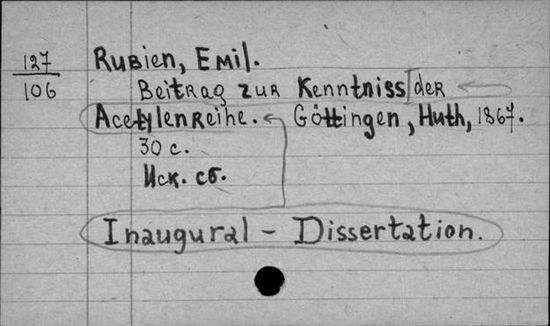 127
106
Rubien, Emil.
Beitrag zur Kenntniss der
Acetylenreihe. Göttingen, Huth, 1867.
30 с.
Иск. сб.
Inaugural - Dissertation.